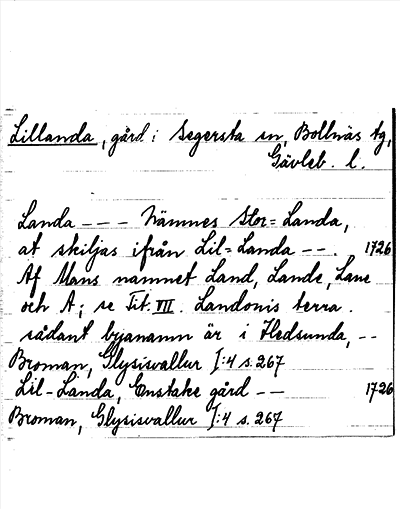 Lillanda, gård i Segersta sn, Bollnäs tg,
Gävleb. l.
Landa --- Nämnes Stor=Landa,
at skiljas ifrån Lil=Landa --. 1726
Af Mans namnet Land, Lande, Lane
och A; se Tit. VII. Landonis terra.
sådant byanamn är i Hedsunda, --
Broman, Glysisvallur I:4 s. 267
Lil-Landa, Enstake gård -- 1726
Broman, Glysisvallur I:4 s. 267